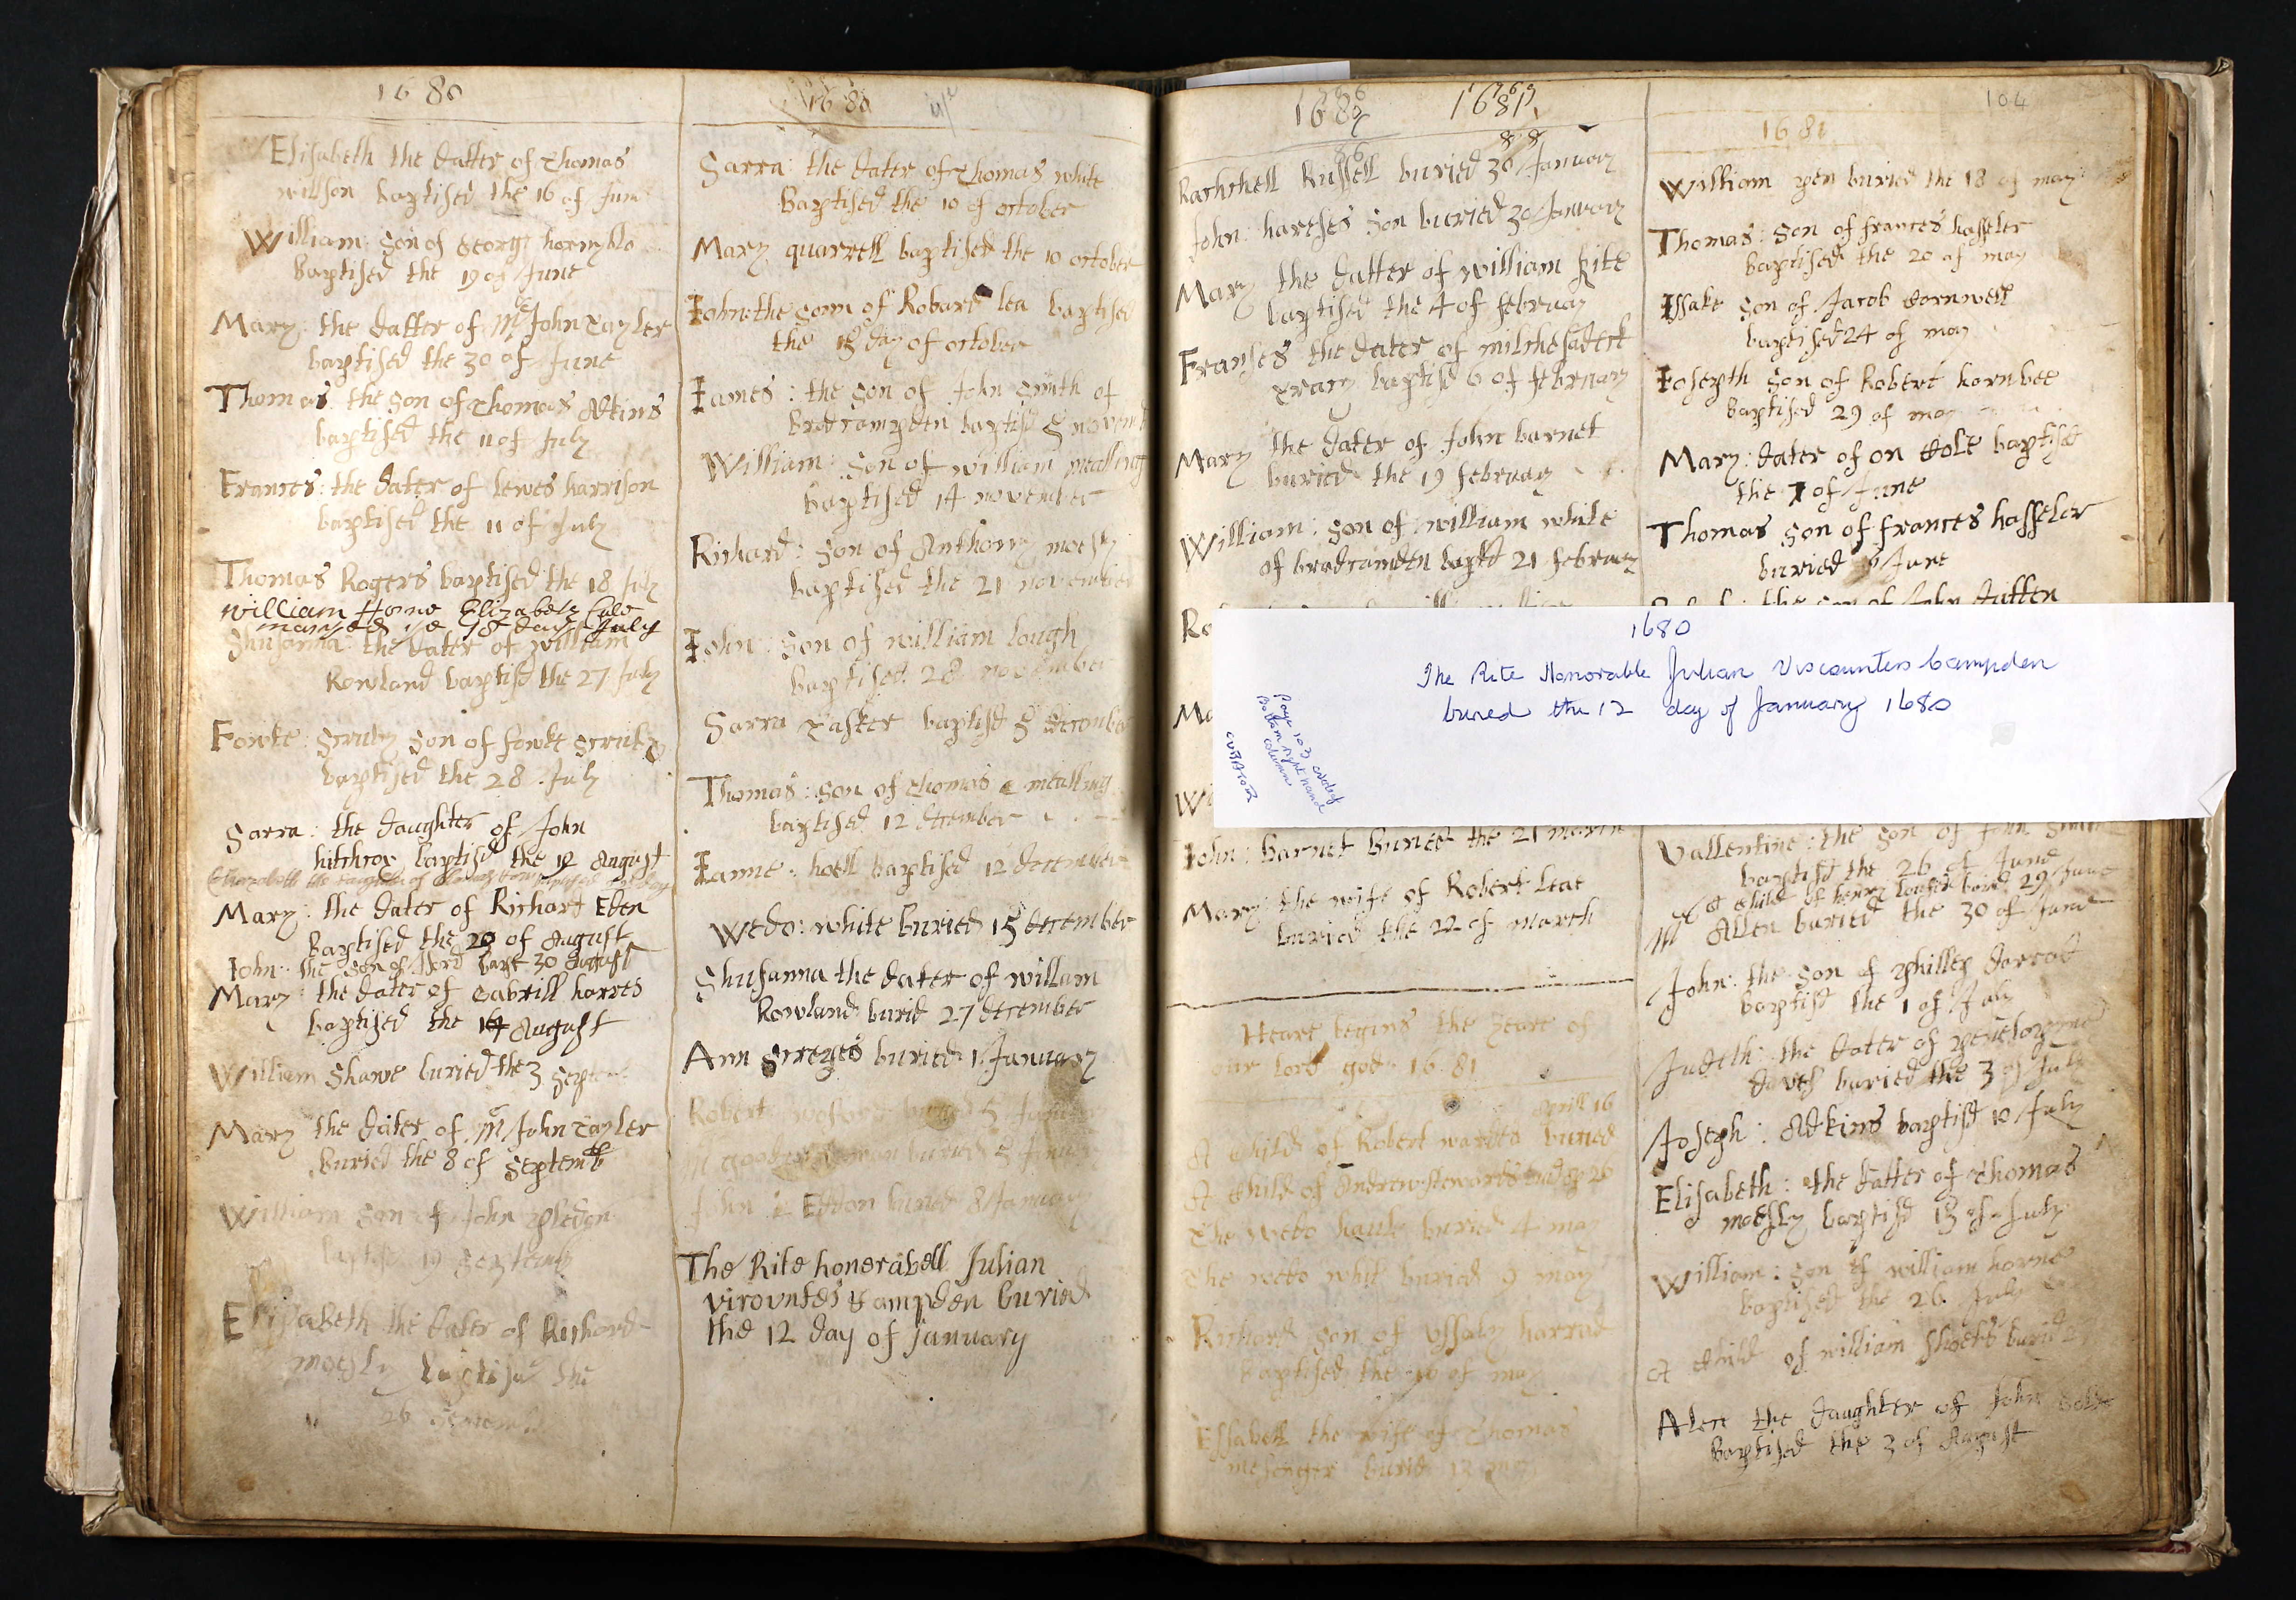 1680
Elisabeth the datter of Thomas
willson baptised the 16 of June
William: Son of Georg hornyblo
baptised the 19 of June
Mary: the datter of Mr John Tayler
baptised the 30 of June
Thomas the Son of Thomas Adkins
baptised the 11 of July
Frances: the dater of Lewes harrison
baptised the 11 of July
Thomas Rogers baptised the 18 July
william Horne Elizabeth
maryed ye 18 day July
Shusanna: the dater of william
Rowland baptisd the 27 July
Fowke: Scruby Son of fowke Scruby
baptised the 28 July
Sarra: the daughter of John
hitchcox baptisd the 12 August
Elizabeth the daughter of
Mary: the dater of Richart Eden
Baptised the 20 of August
John: the Son of ford bapt 30 August
Mary: the dater of Gabrill harres
baptised the 14 August
William Shawe buried the 3 Septem
Mary the dater of Mr John Tayler
buried the 8 of Septemb
William Son of John pledge
baptisd 19 Septemb
Elisabeth the dater of Richard
moesly baptised the
26 Septem
1680
Sarra: the dater of Thomas white
Baptised the 10 of october
Mary quarrell baptised the 10 october
John the sonn of Robart Lea baptised
the 15 day of october
James: the son of John Smith of
Brodcampden baptisd 5 novem
William: Son of william mealling
baptised 14 november
Richard: Son of Anthony moesly
baptised the 21 november
John: Son of william Lough
baptised 28 november
Sarra Tasker baptisd 5 december
Thomas: Son of Thomas mealling
baptised 12 december
Janne: hoell baptised 12 december
Wedo: white buried 15 december
Shusanna the dater of willam
Rowland burid 27 december
Ann buried 1 January
Robert buried 5 January
buried 5 January
John Ebdon buried 8 January
The Rite honerabell Julian
vicountes Campden buried
the 12 day of January
1680 1681
Rachchell Russell buried 30 January
John: hartses Son buried 30 January
Mary the datter of william kite
baptised the 4 of february
Franses the dater of
Tracy baptisd 6 of february
Mary the dater of John barnet
buried the 19 february
William: Son of william white
of brodcamden baptd 21 february
Ro
Ma
Wi
John: Barnet Buried the 21 march
Mary: the wife of Robert Leae
buried the 22 of march
Heare begins the yeare of
our lord god 1681
Aprill 16
A Child of Robert buried
A Child of Andrew Stewards burid 26
The wedo hauk buried 4 may
The wedo whit buried 9 may
Richard Son of harrad
baptised the 10 of may
Essabell the wife of Thomas
mesenger burid 13 may
104
1681
William pen buried the 18 of may
Thomas: Son of frances hasseler
baptised the 20 of may
Issake Son of Jacob Cornwell
baptised 24 of may
Joseph Son of Robert hornbee
baptised 29 of may
Mary: dater of on Cole baptisd
the 7 of June
Thomas Son of frances hasseler
buried 6 June
the son of John
1680
The Rite Honorable Julian Viscountess Campden
buried the 12 day of January 1680
Page 103 overleaf
Bottom right hand
column
CURATOR
Vallentine: the son of John Smith
baptisd the 26 of June
A Child of henry burid 29 June
Mr Allen buried the 30 of June
John: the son of phillep Jarrat
baptisd the 1 of July
Judeth: the dater of
daves buried the 3 of July
Joseph: Adkins baptisd 10 July
Elisabeth: the datter of Thomas
moesly baptisd 13 of July
William: Son of william horne
baptised the 26 July
A Child of william buried
Alece the daughter of John
baptised the 3 of August